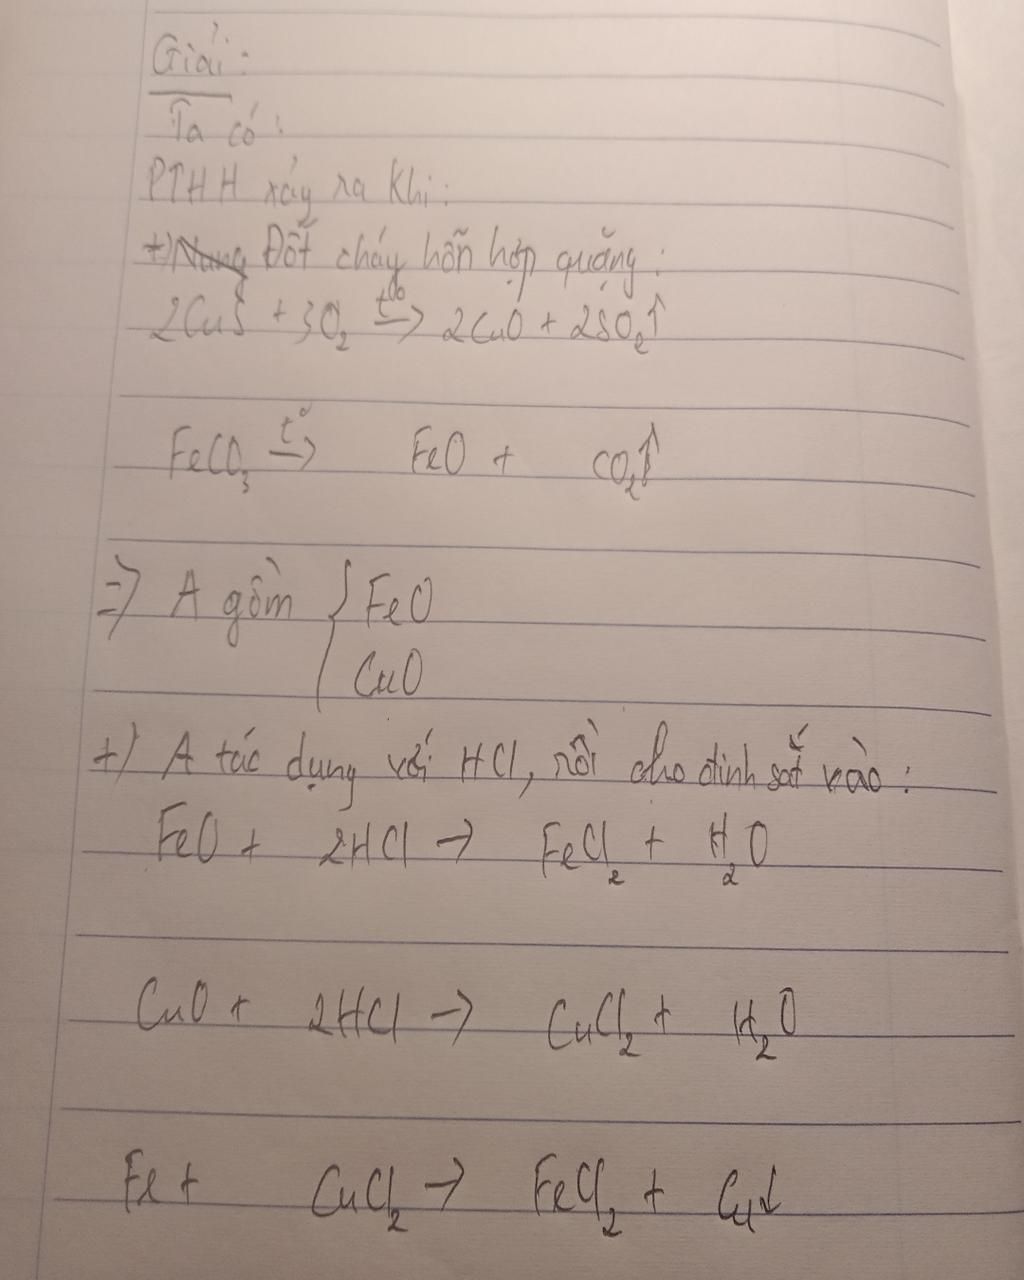 Giải:
Ta có:
PTHH xảy ra khi:
+) Nung Đốt cháy hỗn hợp quặng:
2CuS + 3O₂ t⁰→ 2CuO + 2SO₂↑
FeCO₃ t⁰→ FeO + CO₂↑
=> A gồm { FeO
CuO
+) A tác dụng với HCl, rồi cho đinh sắt vào:
FeO + 2HCl → FeCl₂ + H₂O
CuO + 2HCl → CuCl₂ + H₂O
Fe + CuCl₂ → FeCl₂ + Cu↓